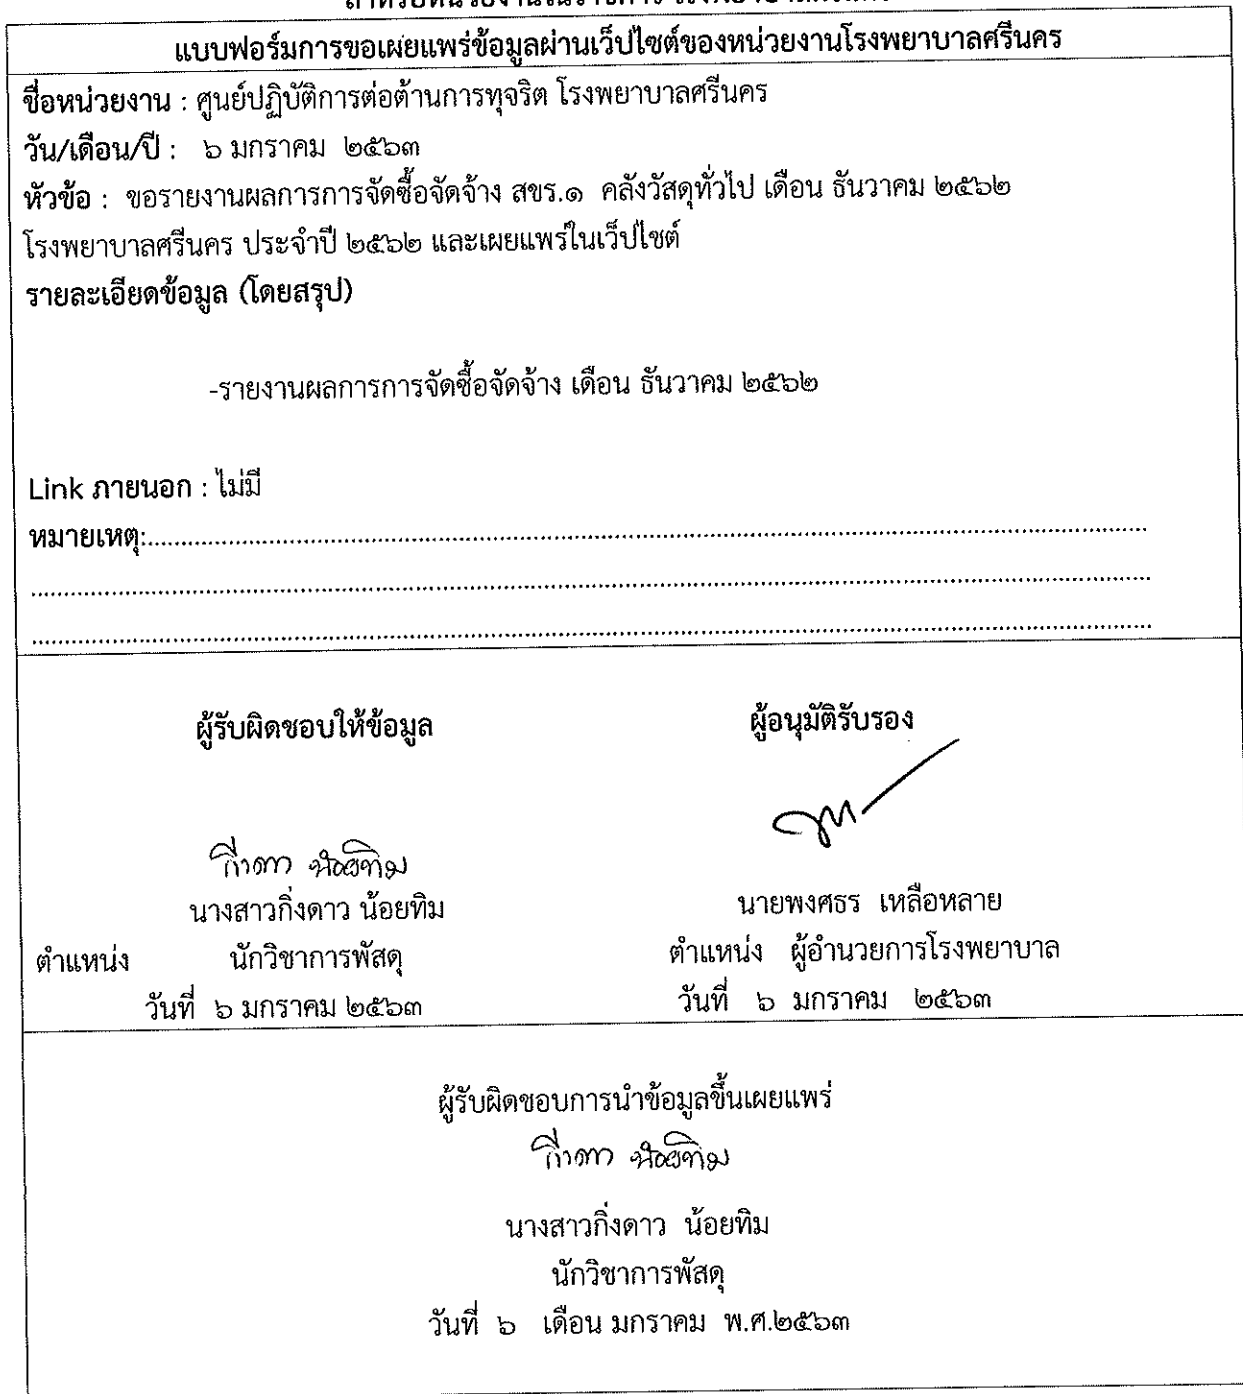 แบบฟอร์มการขอเผยแพร่ข้อมูลผ่านเว็ปไซต์ของหน่วยงานโรงพยาบาลศรีนคร
ชื่อหน่วยงาน : ศูนย์ปฏิบัติการต่อต้านการทุจริต โรงพยาบาลศรีนคร
วัน/เดือน/ปี : ๖ มกราคม ๒๕๖๓
หัวข้อ : ขอรายงานผลการการจัดซื้อจัดจ้าง สขร.๑ คลังวัสดุทั่วไป เดือน ธันวาคม ๒๕๖๒
โรงพยาบาลศรีนคร ประจำปี ๒๕๖๒ และเผยแพร่ในเว็ปไซต์
รายละเอียดข้อมูล (โดยสรุป)
-รายงานผลการการจัดซื้อจัดจ้าง เดือน ธันวาคม ๒๕๖๒
Link ภายนอก : ไม่มี
หมายเหตุ:
ผู้รับผิดชอบให้ข้อมูล ผู้อนุมัติรับรอง
กิ่งดาว น้อยทิม
นางสาวกิ่งดาว น้อยทิม นายพงศธร เหลือหลาย
ตำแหน่ง นักวิชาการพัสดุ ตำแหน่ง ผู้อำนวยการโรงพยาบาล
วันที่ ๖ มกราคม ๒๕๖๓ วันที่ ๖ มกราคม ๒๕๖๓
ผู้รับผิดชอบการนำข้อมูลขึ้นเผยแพร่
กิ่งดาว น้อยทิม
นางสาวกิ่งดาว น้อยทิม
นักวิชาการพัสดุ
วันที่ ๖ เดือน มกราคม พ.ศ.๒๕๖๓